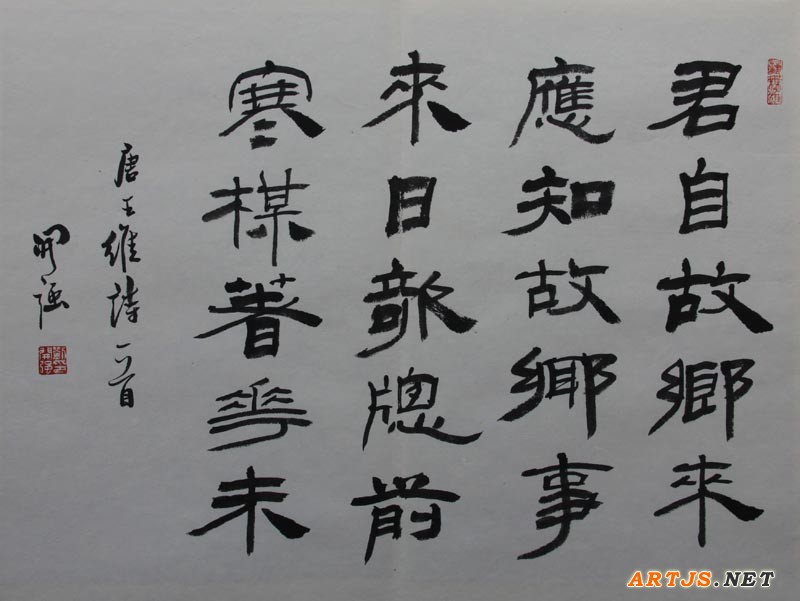 君自故鄉來
應知故鄉事
來日牕前
寒楳著華未
唐王維詩一首
開强
ARTJS.NET